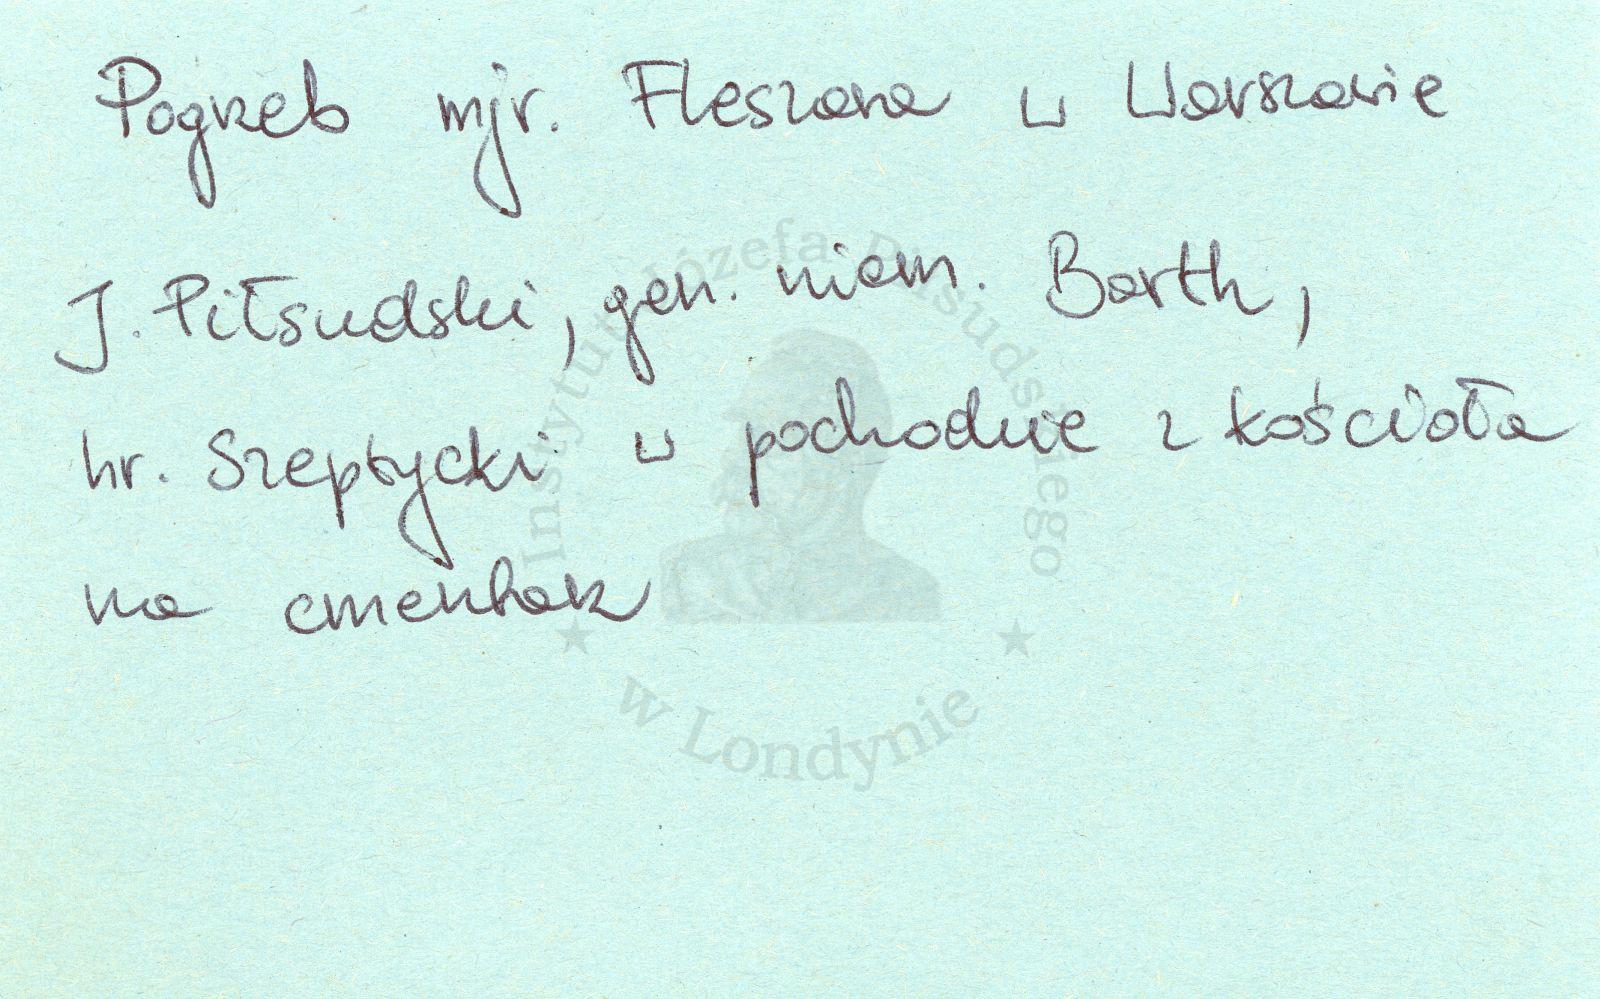 Pogrzeb mjr. Fleszara w Warszawie
J. Piłsudski, gen. niem. Barth,
hr. Szeptycki w pochodzie z kościoła
na cmentarz
Instytut Józefa Piłsudskiego
w Londynie